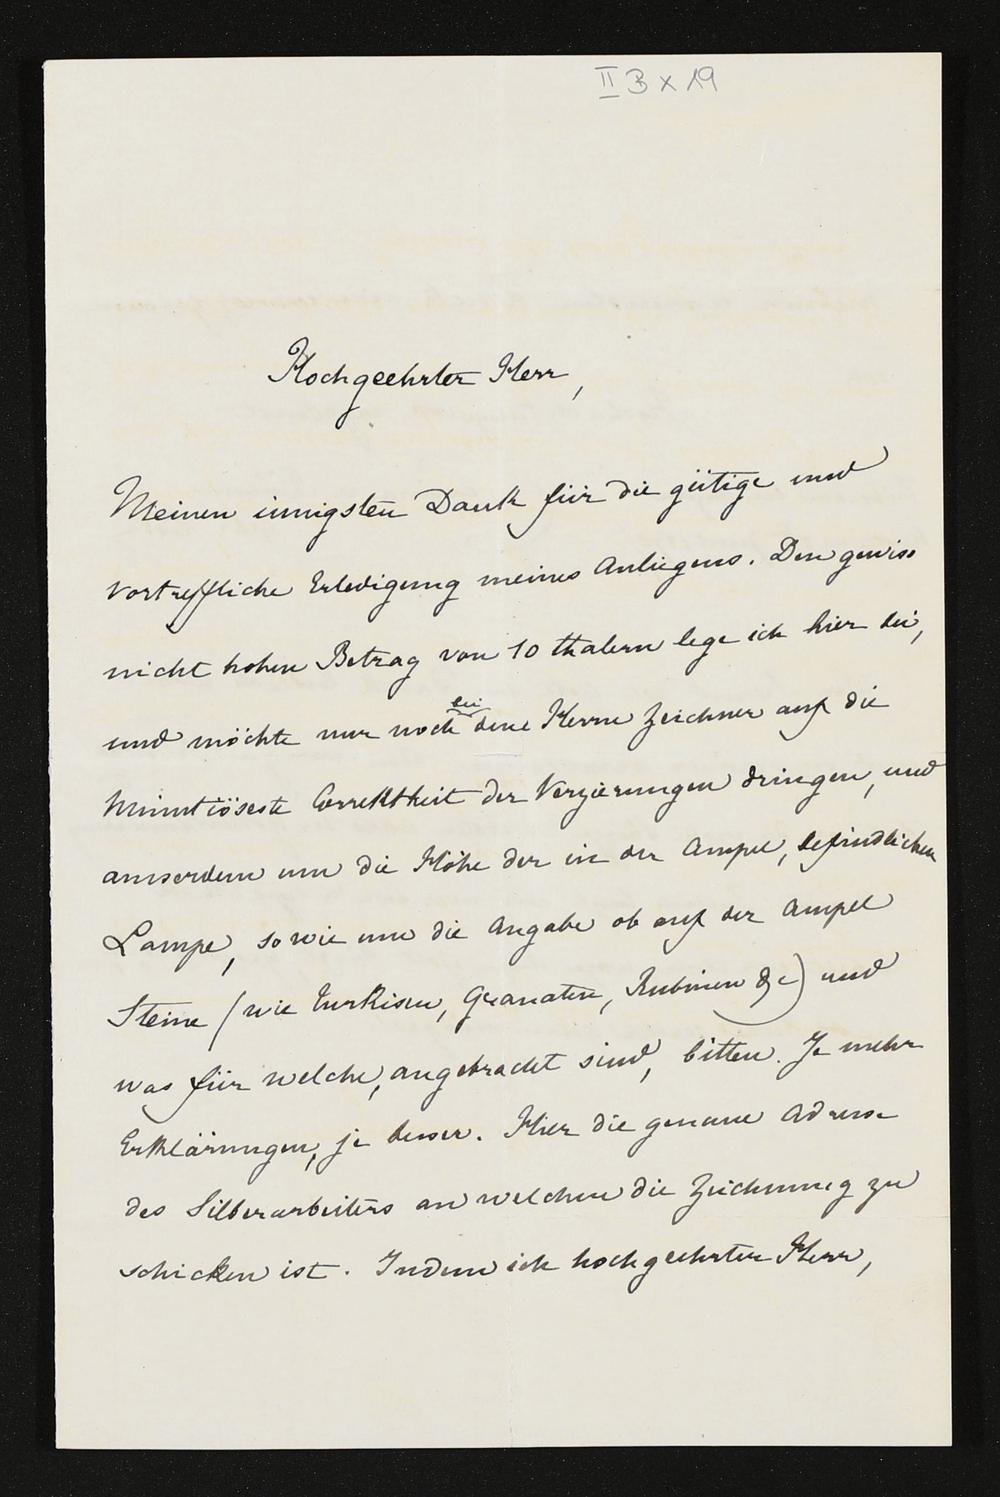 II B x 19
Hochgeehrter Herr,
Meinen innigsten Dank für die gütige und
vortreffliche Erledigung meines Anliegens. Den gewiss
nicht hohen Betrag von 10 thalern lege ich hier bei,
und möchte nur noch bei dem Herrn Zeichner auf die
minutiöseste Correktheit der Verzierungen dringen, und
ausserdem um die Höhe der in der Ampel, befindlichen
Lampe, sowie um die Angabe ob auf der Ampel
Steine (wie Turkisen, Granaten, Rubinen &c) und
was für welche, angebracht sind, bitten. Je mehr
Erklärungen, je besser. Hier die genaue Adresse
des Silberarbeiters an welchen die Zeichnung zu
schicken ist. Indem ich hochgeehrter Herr,